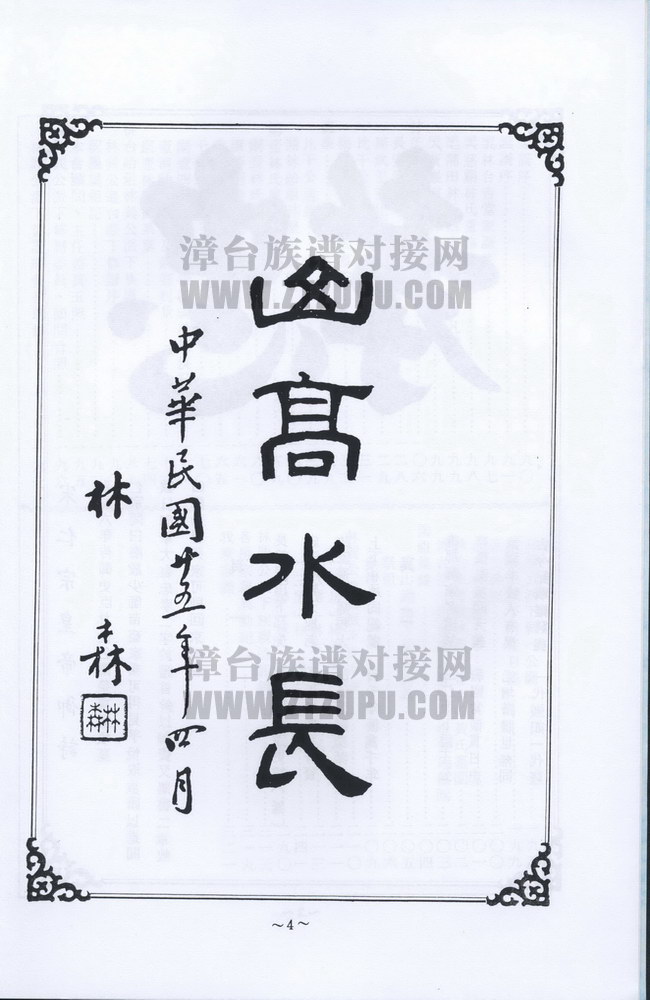 山高水長
中華民國廿五年四月
林森
林森
漳台族谱对接网
WWW.ZTZUPU.COM
漳台族谱对接网
WWW.ZTZUPU.COM
~4~